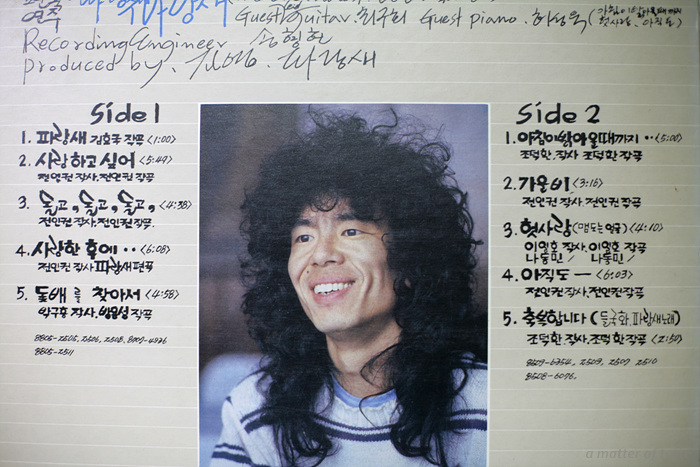 연주
Guest Guitar. 최구희 Guest piano. 하성욱
Recording Engineer 송형헌
produced by. 파랑새
Side 1
1. 파랑새 김효국 작곡 <1:00>
2. 사랑하고 싶어 <5:49>
전인권 작사. 전인권 작곡
3. 돌고, 돌고, 돌고, <4:38>
전인권 작사. 전인권 작곡.
4. 사랑한 후에 ·· <6:08>
전인권 작사 파랑새 편곡
5. 돛배를 찾아서 <4:58>
박구홍 작사. 백운성 작곡
8805-2505, 2506, 2508, 8007-4936
8805-2511
Side 2
1. 아침이 밝아올때까지 ·· <5:00>
조덕환. 작사 조덕환 작곡
2. 가을비 <3:16>
전인권 작사. 전인권 작곡
3. 헛사랑 (맴도는 얼굴) <4:10>
이영호 작사. 이영호 작곡
나동민 / 나동민 /
4. 아직도 — <6:03>
전인권 작사. 전인권 작곡
5. 축복합니다 (들국화, 파랑새노래)
조덕환. 작사. 조덕환 작곡 <2:54>
8609-6354, 2509, 2507 2510
8508-6076.
a matter of